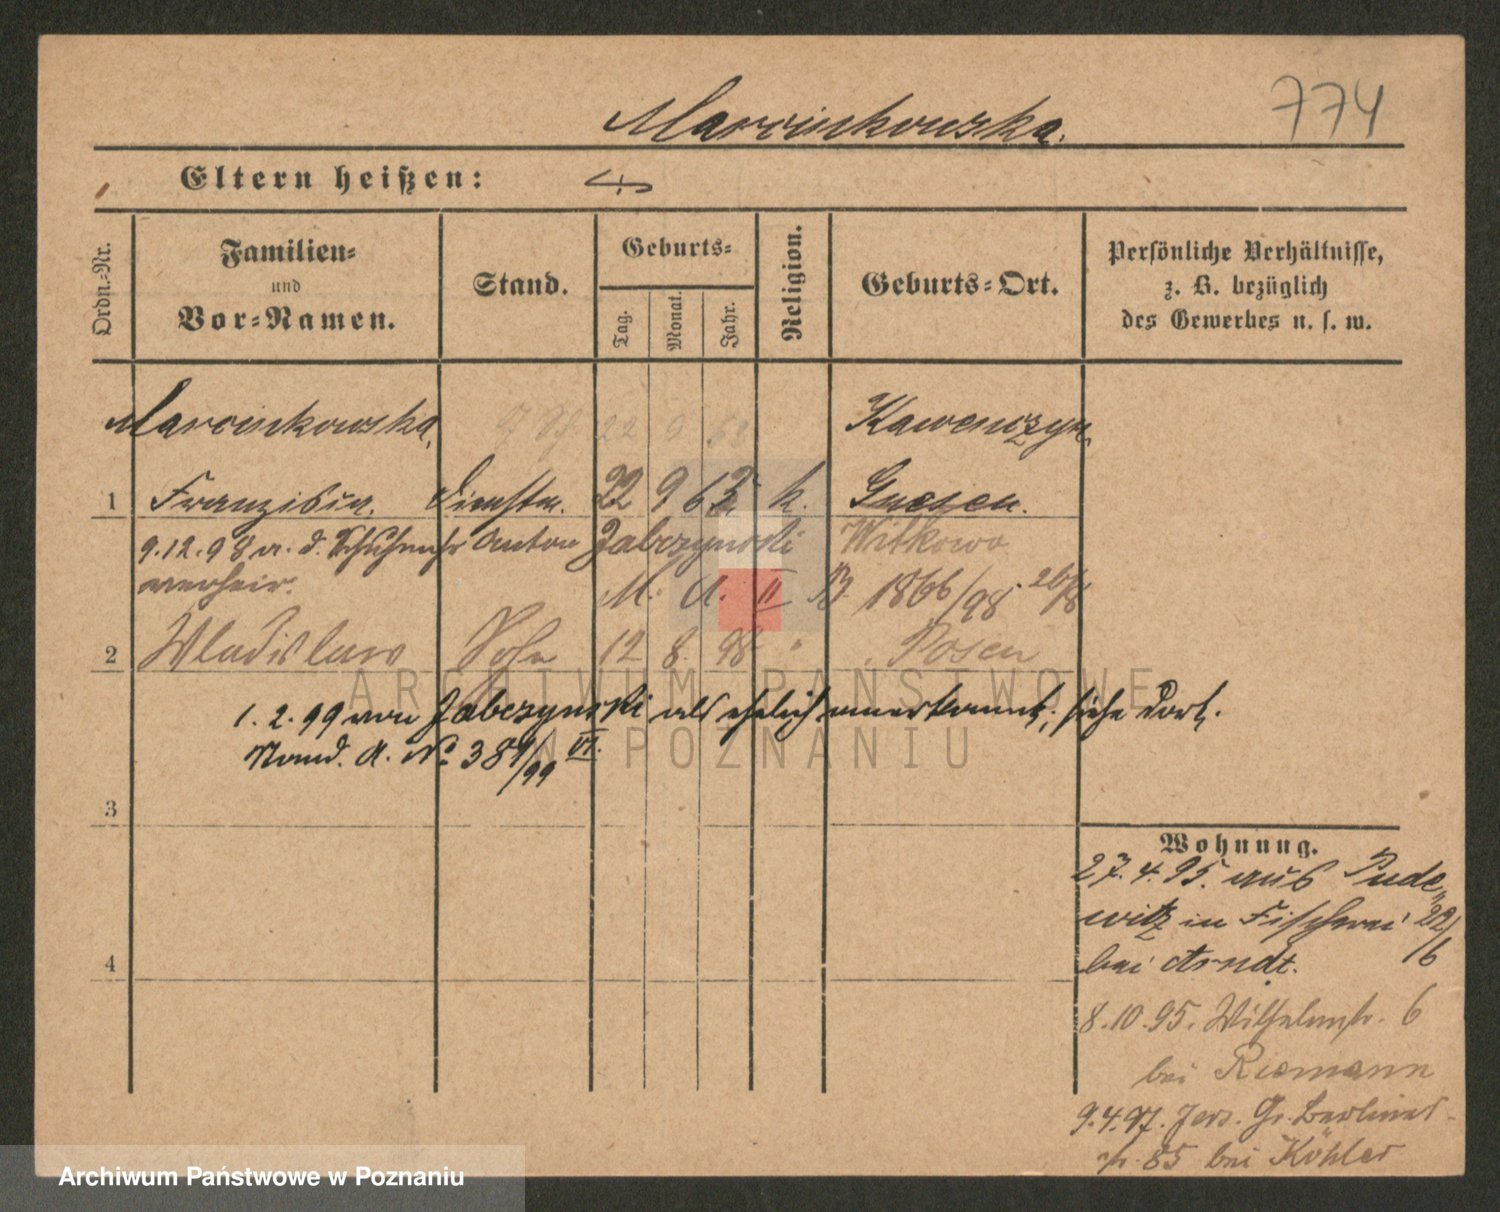 Marcinkowska.
774
Eltern heißen:
Ordn.-Nr.
Familien-
und
Vor-Namen.
Stand.
Geburts-
Tag.
Monat.
Jahr.
Religion.
Geburts-Ort.
Persönliche Verhältnisse,
z. B. bezüglich
des Gewerbes u. s. w.
Marcinkowska,
22 9 63
Kawenczyn
1 Franziska. Dienstm. 22 9 63 k. Gnesen.
9.12.98 a. d. Anton Jabczynski Witkowo
verheir.
M. A. II B. 1866/98
2 Wladislaw Sohn 12 8. 98 " Posen
1.2.99 von Jabczynski als ehelich anerkannt, siehe dort.
A. No 381/99 VI.
3
4
Wohnung.
27.4.95. aus Pude-
witz in Fischerei 22/6
bei Arndt.
8.10.95. Wilhelmstr. 6
bei Riemann
9.4.97. Jers. Gr. Berliner-
str. 85 bei Köhler
ARCHIWUM PAŃSTWOWE
W POZNANIU
Archiwum Państwowe w Poznaniu